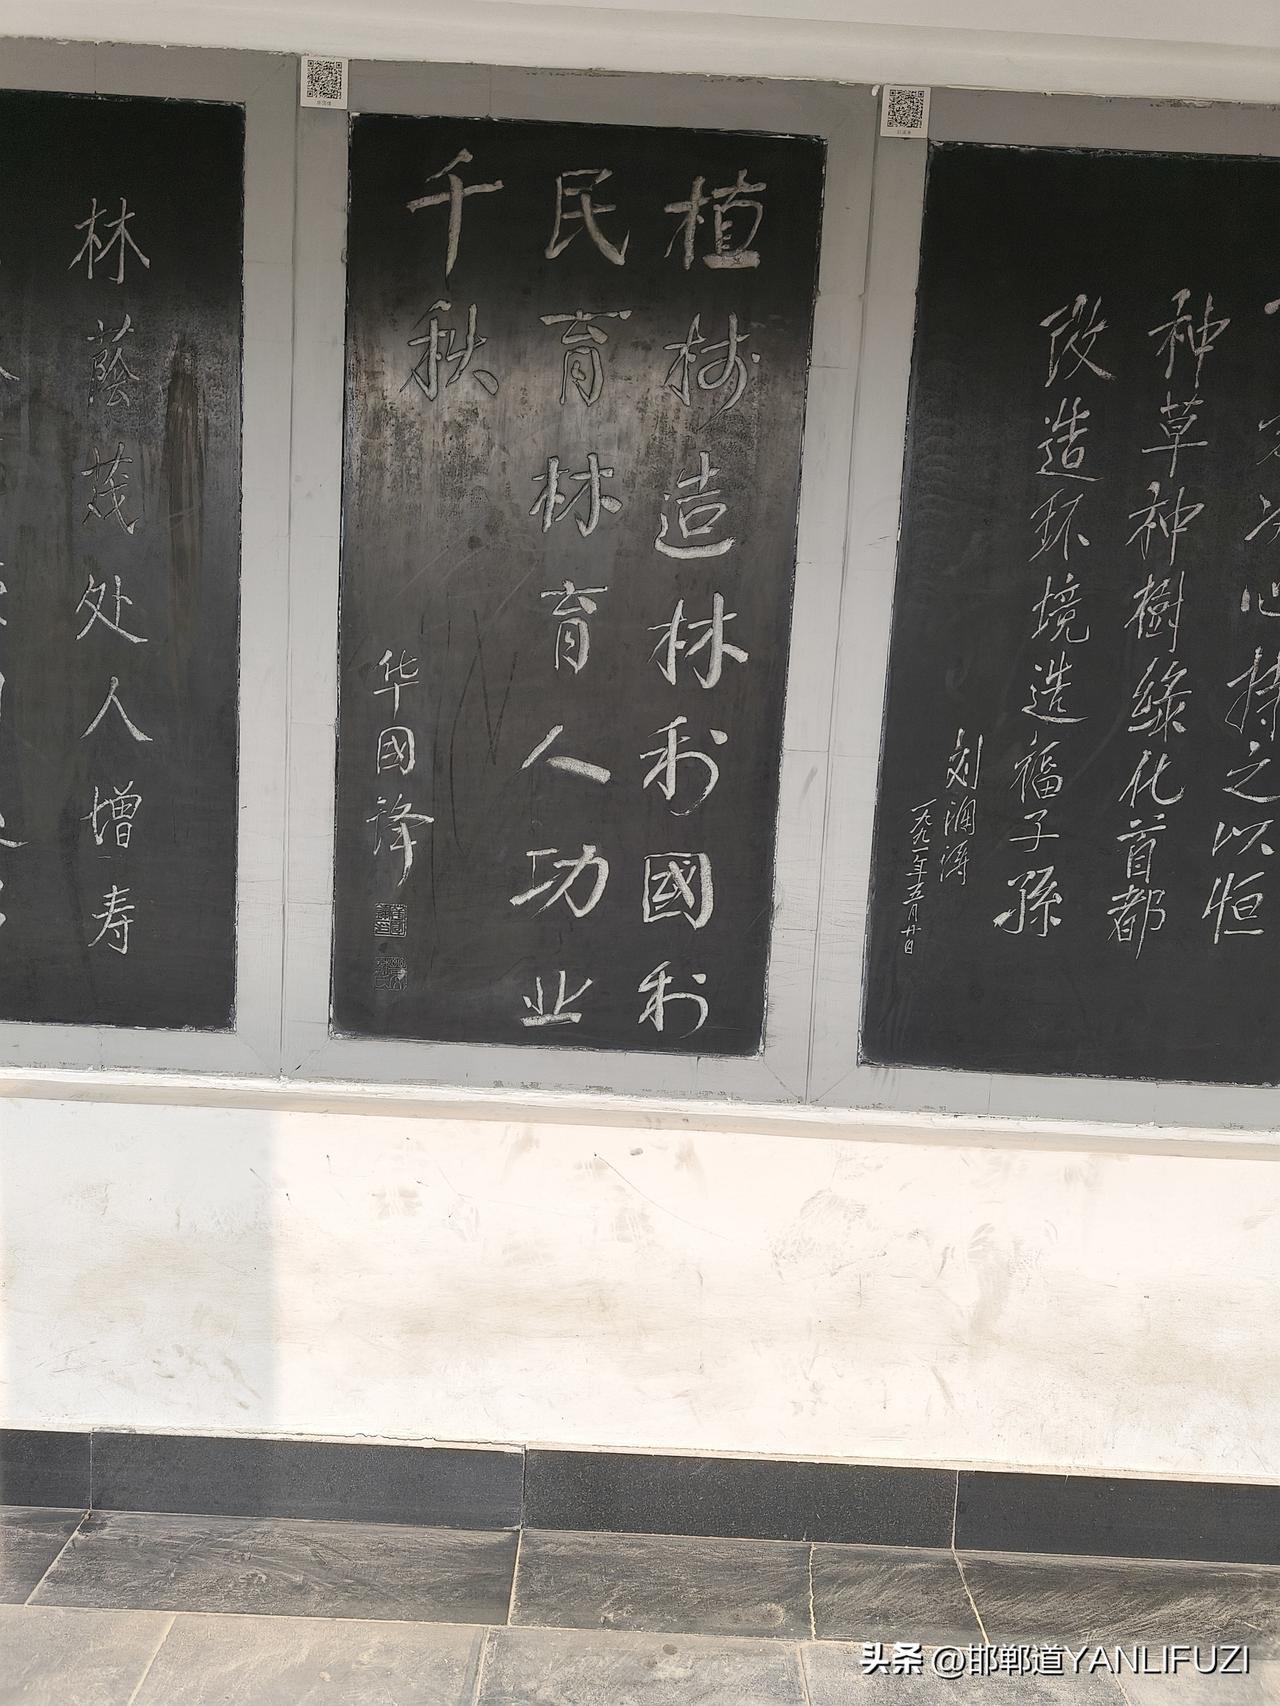 下定决心持之以恒
种草种樹綠化首都
改造环境造福子孫
刘澜涛
一九九一年五月廿日
植树造林利國利
民育林育人功业
千秋
华國锋
林蔭茂处人增寿
头条 @邯郸道YANLIFUZI